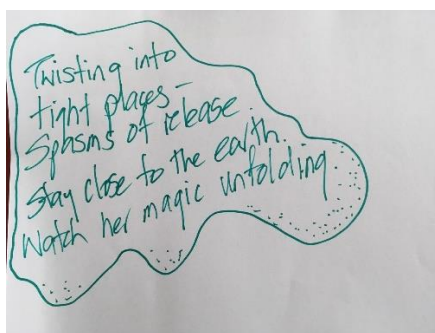 Twisting into
tight places -
Spasms of release.
Stay close to the earth.
Watch her magic unfolding